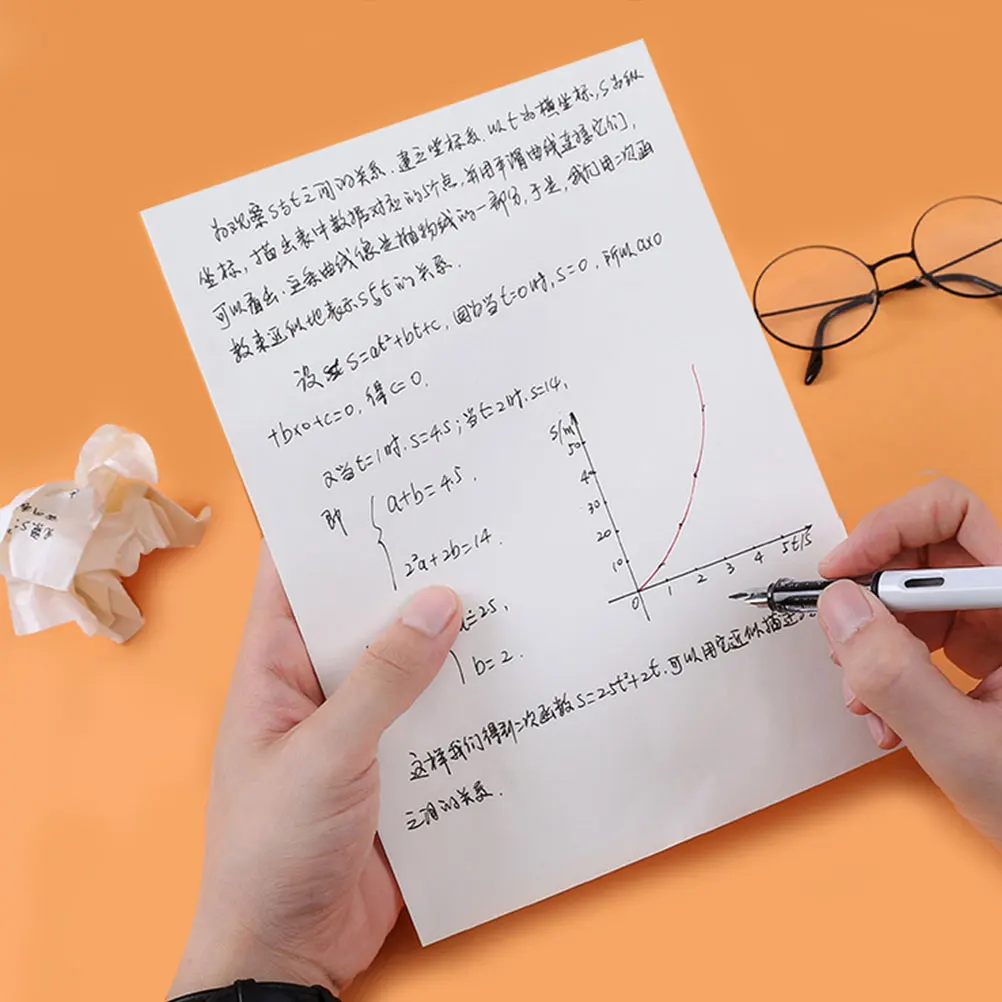 为观察s与t之间的关系,建立坐标系,以t为横坐标,s为纵
坐标,描出表中数据对应的5个点,并用平滑曲线连接它们,
可以看出,这条曲线像是抛物线的一部分,于是,我们用二次函
数来近似地表示s与t的关系.
设 S=at²+bt+c,因为当t=0时,s=0,所以a×0
+b×0+c=0,得c=0.
又当t=1时,s=4.5;当t=2时,s=14,
即 { a+b=4.5,
2²a+2b=14.
a=25,
b=2.
s/m
50
40
30
20
10
0 1 2 3 4 5 t/s
这样我们得到二次函数s=25t²+2t,可以用它近似描述
之间的关系.